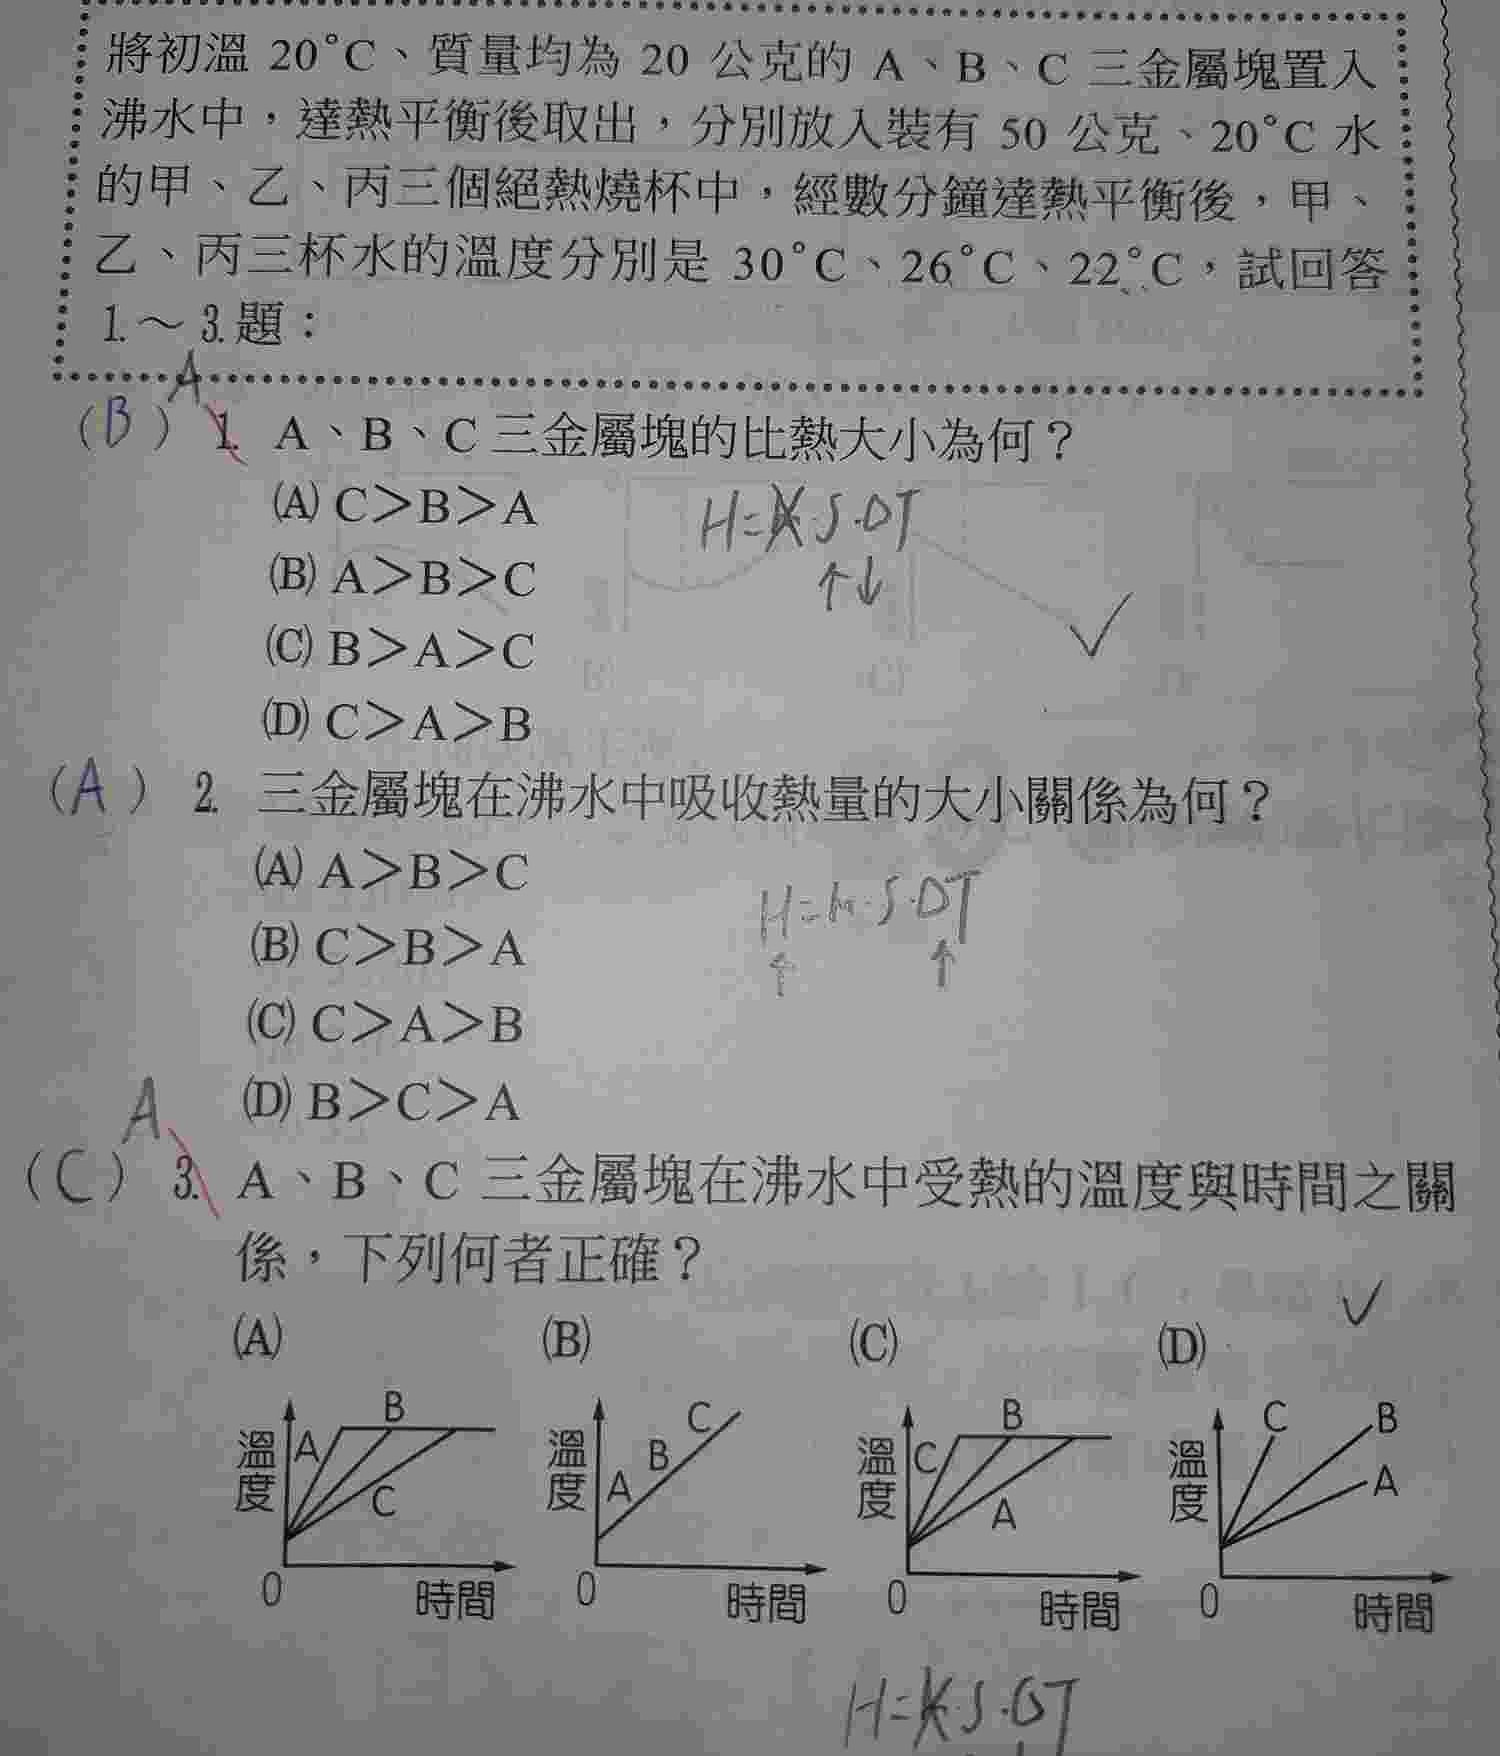 將初溫 20°C、質量均為 20 公克的 A、B、C 三金屬塊置入
沸水中，達熱平衡後取出，分別放入裝有 50 公克、20°C 水
的甲、乙、丙三個絕熱燒杯中，經數分鐘達熱平衡後，甲、
乙、丙三杯水的溫度分別是 30°C、26°C、22°C，試回答
1.～3.題：
A
(B) 1. A、B、C 三金屬塊的比熱大小為何？
(A) C＞B＞A
H=M·S·DT
(B) A＞B＞C
↑↓
(C) B＞A＞C
(D) C＞A＞B
(A) 2. 三金屬塊在沸水中吸收熱量的大小關係為何？
(A) A＞B＞C
H=M·S·DT
(B) C＞B＞A
↑ ↑
(C) C＞A＞B
(D) B＞C＞A
A
(C) 3. A、B、C 三金屬塊在沸水中受熱的溫度與時間之關
係，下列何者正確？
(A) (B) (C) (D)
溫度 A B C 0 時間
溫度 A B C 0 時間
溫度 C B A 0 時間
溫度 C B A 0 時間
H=M·S·DT